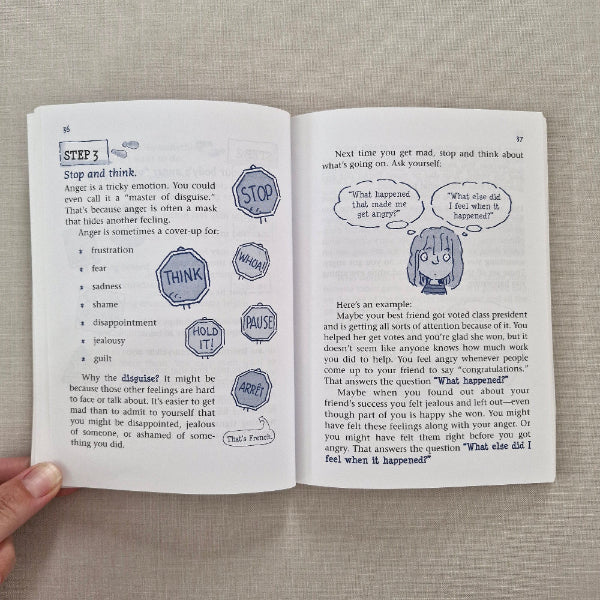 36
STEP 3
Stop and think.
Anger is a tricky emotion. You could
even call it a “master of disguise.”
That’s because anger is often a mask
that hides another feeling.
Anger is sometimes a cover-up for:
frustration
fear
sadness
shame
disappointment
jealousy
guilt
STOP
WHOA!!
THINK
PAUSE
HOLD
IT!
ARRÊT
That’s French.
Why the disguise? It might be
because those other feelings are hard
to face or talk about. It’s easier to get
mad than to admit to yourself that
you might be disappointed, jealous
of someone, or ashamed of some-
thing you did.
37
Next time you get mad, stop and think about
what’s going on. Ask yourself:
“What happened
that made me
get angry?”
“What else did
I feel when it
happened?”
Here’s an example:
Maybe your best friend got voted class president
and is getting all sorts of attention because of it. You
helped her get votes and you’re glad she won, but it
doesn’t seem like anyone knows how much work
you did to help. You feel angry whenever people
come up to your friend to say “congratulations.”
That answers the question “What happened?”
Maybe when you found out about your
friend’s success you felt jealous and left out—even
though part of you is happy she won. You might
have felt these feelings along with your anger. Or
you might have felt them right before you got
angry. That answers the question “What else did I
feel when it happened?”